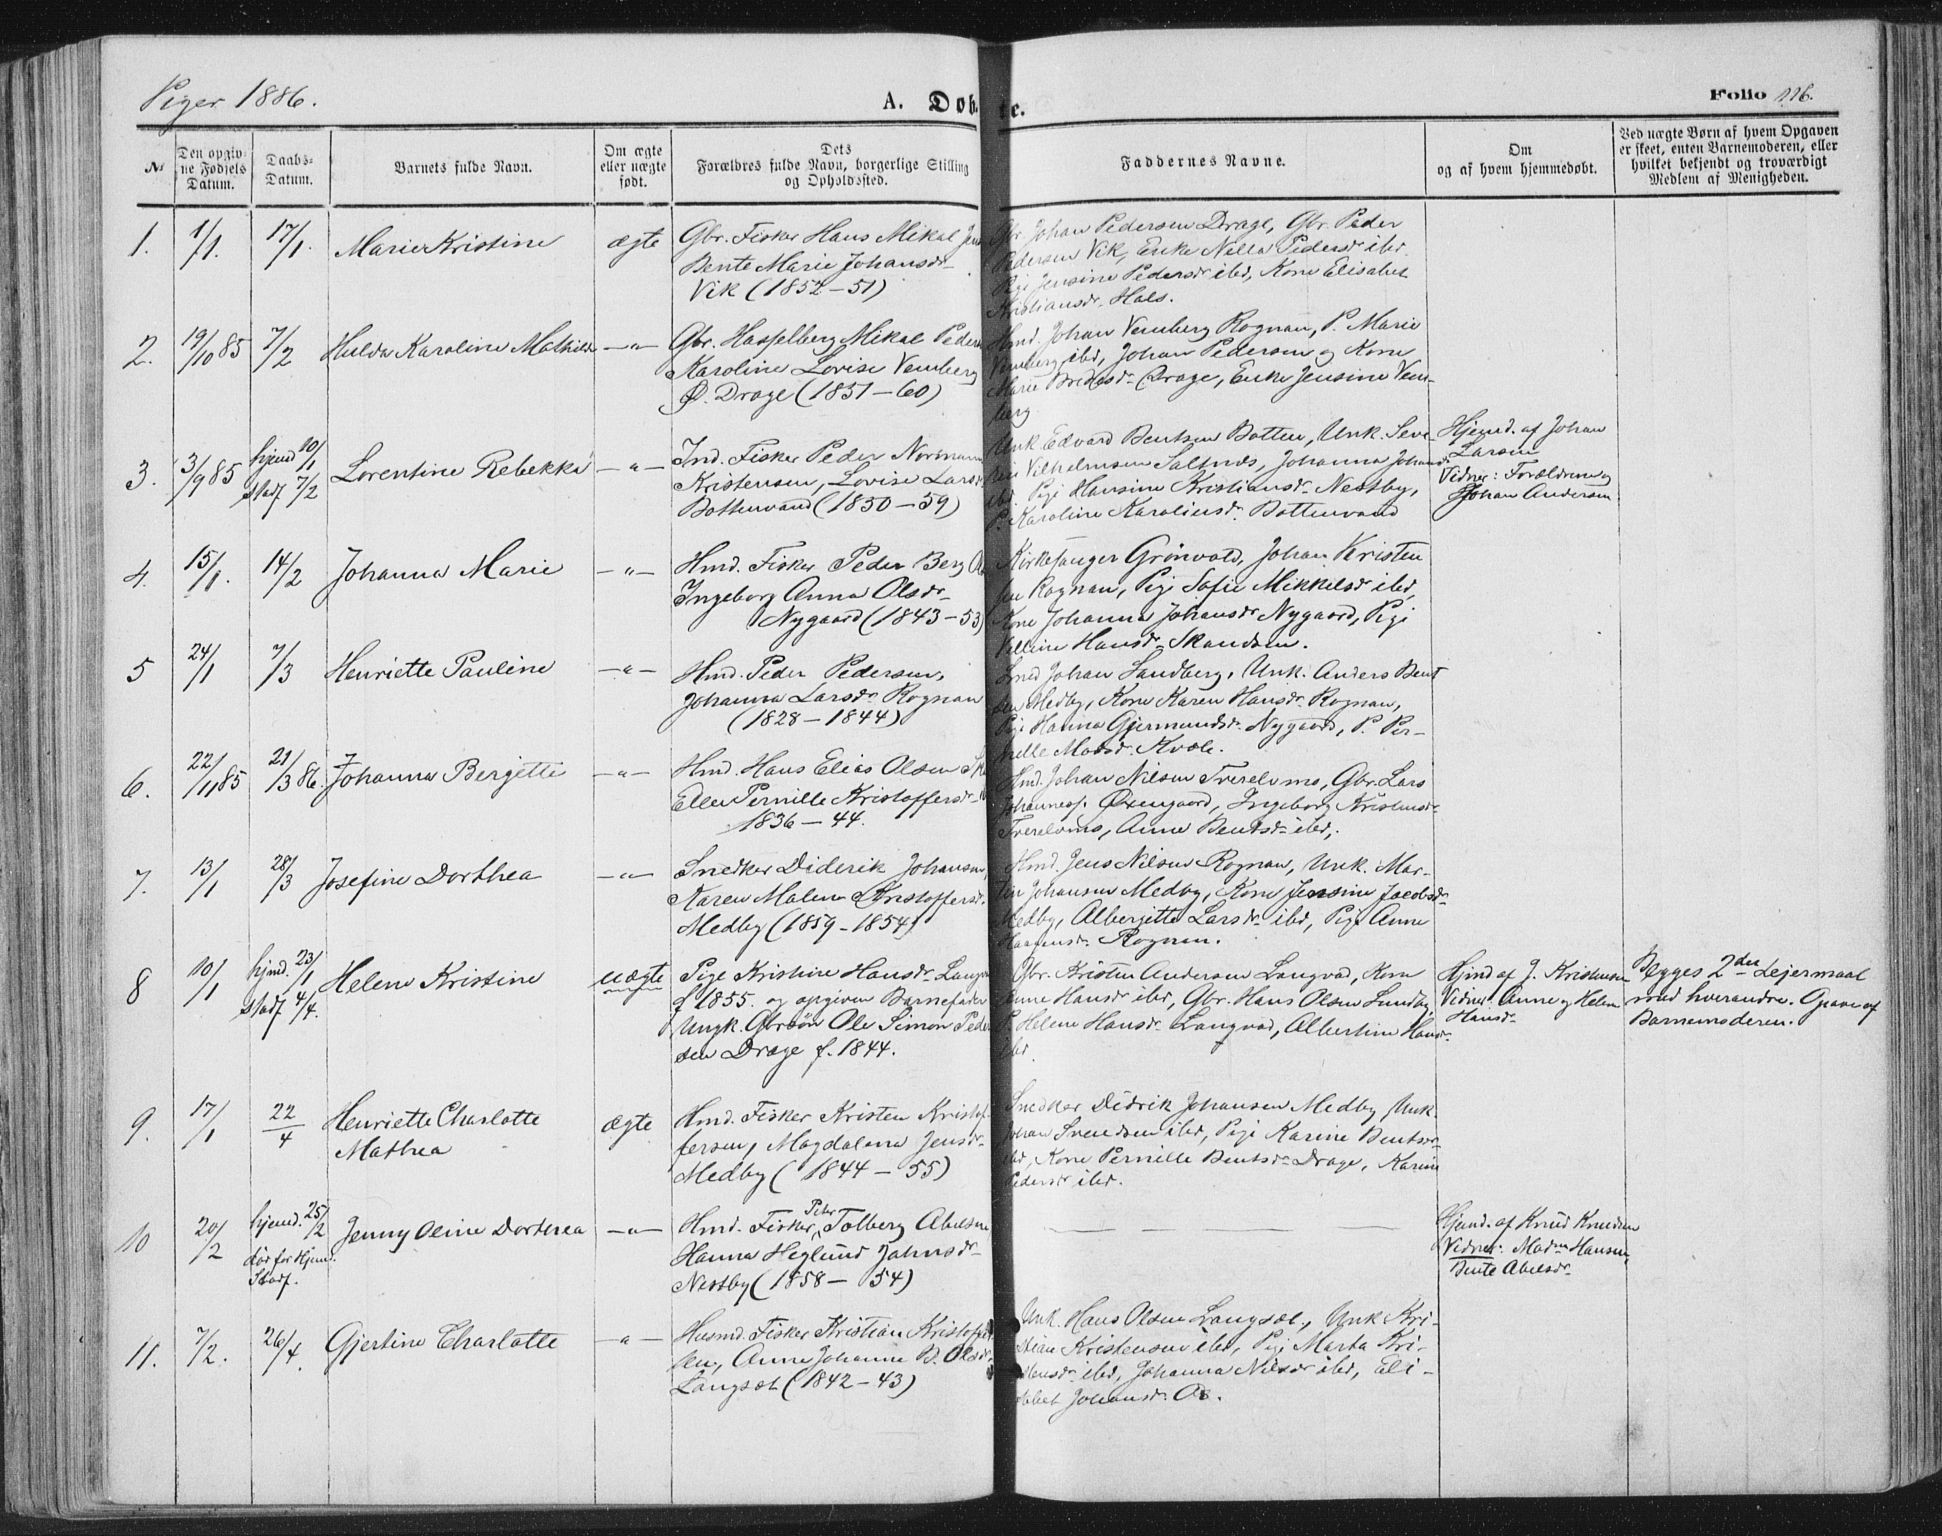 Piger 1886.
A. Døb te.
Folio 116.
№
Den opgiv-
ne Fødsels
Datum.
Daabs-
Datum.
Barnets fulde Navn.
Om ægte
eller uægte
født.
Dets
Forældres fulde Navn, borgerlige Stilling
og Opholdssted.
Faddernes Navne.
Om
og af hvem hjemmedøbt.
Ved uægte Børn af hvem Opgaven
er skeet, enten Barnemoderen, eller
hvilket bekjendt og troværdigt
Medlem af Menigheden.
1.
1/1.
17/1.
Marie Kristine
ægte
Gbr. Fisker Hans Mikal Jens
Bente Marie Johansdr
Vik (1852-51)
Gbr. Johan Pedersen Drage, Gbr. Peder
Pedersen Vik, Enke Nella Pedersdr ibd.
Pige Jensine Pedersdr ibd, Kone Elisabet
Kristiansdr. Hals.
2.
19/10 85
7/2
Hulda Karoline Mathilde
-"-
Gbr. Hasselberg Mikal Peders
Karoline Lovise Vemberg
Ø. Drage (1851-60)
Hmd. Johan Vemberg Rognan, P. Marie
Vemberg ibd, Johan Pedersen og Kone
Marie Bredesdr Drage, Enke Jensine Vem-
berg
3.
3/9 85
hjemd 10/1
stadf 7/2
Lorentine Rebekka
-"-
Ind. Fisker Peder Normann
Kristensen, Lovise Larsdr
Bottenvand (1850-59)
Unk Edvard Bentsen Botten, Unk. Seve-
Vilhelmsen Saltnes, Johanna Johansdr
ibd. Pige Hansine Kristiansdr. Nestby,
P. Karoline Karolinsdr. Bottenvand
Hjemd. af Johan
Larsen
Vidner: Forældrene og
Johan Andersen
4.
15/1.
14/2
Johanna Marie
-"-
Hmd. Fisker Peder Berg
Ingeborg Anna Olsdr
Nygaard (1843-53)
Kirkesanger Grönvold, Johan Kristen
sen Rognan, Pige Sofie Mikkelsdr ibd,
Kone Johanna Johansdr Nygaard, Pige
Velline Hansdr Skandsen.
5
24/1
7/3
Henriette Pauline
-"-
Hmd. Peder Pedersen,
Johanna Larsdr Rognan
(1828-1844)
Smed Johan Sandberg, Unk. Anders Bent
sen Medby, Kone Karen Hansdr Rognan,
Pige Hanna Gjermundsdr. Nygaard, P. Per-
nelle Madsdr. Kvæle.
6.
22/11 85
21/3 86.
Johanna Bergette
-"-
Hmd. Hans Elias Olsen
Ellen Pernille Kristoffersdr
1836-44.
Hmd. Johan Nilsen Tverelvmo, Gbr. Lars
Johannes. Øxengaard, Ingeborg Kristensdr
Tverelvmo, Anne Bentsdr ibd.
7.
13/1
28/3
Josefine Dorthea
-"-
Snedker Diderik Johansen,
Karen Malene Kristoffersdr
Medby (1859-1854)
Hmd. Jens Nilsen Rognan, Unk. Mar-
tin Johansen Medby, Kone Jensine Jacobsdr
Medby, Albergitte Larsdr ibd, Pige Anne
Haagensdr. Rognan.
8
10/1
hjmd. 23/1
stadf 4/4.
Helene Kristine
uægte
Pige Kristine Hansdr Langvad
f 1855. og opgiven Barnefader
Ungk. Gbrsön Ole Simon Peder
sen Drage f. 1844.
Gbr. Kristen Andersen Langvad, Kone
Anne Hansdr ibd, Gbr. Hans Olsen Lundby
P. Helene Hansdr Langvad, Albertine Hansdr
ibd.
Hjmd af J. Kristensen
Vidner: Anne og Helene
Hansdr
Begges 2den Lejermaal
med hverandre. Opgave af
Barnemoderen.
9.
17/1
22/4
Henriette Charlotte
Mathea
ægte
Hmd. Fisker Kristen Kristof-
fersen, Magdalena Jensdr
Medby (1844-55)
Snedker Didrik Johansen Medby, Unk.
Johan Svendsen ibd, Pige Karine Bentsdr
ibd, Kone Pernille Bentsdr Drage, Karine
Pedersdr ibd.
10
20/2
hjemd. 25/2
död for Hjemd.
Stadf.
Jenny Oline Dorthea
-"-
Hmd. Fisker, Peter Tolberg Abelsen
Hanna Heglund Johnsdr
Nestby (1858-54)
Hjemd. af Knud Knudsen
Vidner: Madm Hansen,
Bente Abelsdr
11.
7/2.
26/4
Gjertine Charlotte
-"-
Husmd. Fisker Kristian Kristoffer
sen, Anne Johanne B. Olsdr
Langsæt (1842-43)
Unk. Hans Olsen Langsæt, Unk Kri-
stian Kristensen ibd, Pige Marta Kri-
stensdr ibd, Johanna Nilsdr ibd, Eli-
sabet Johansdr. Os.